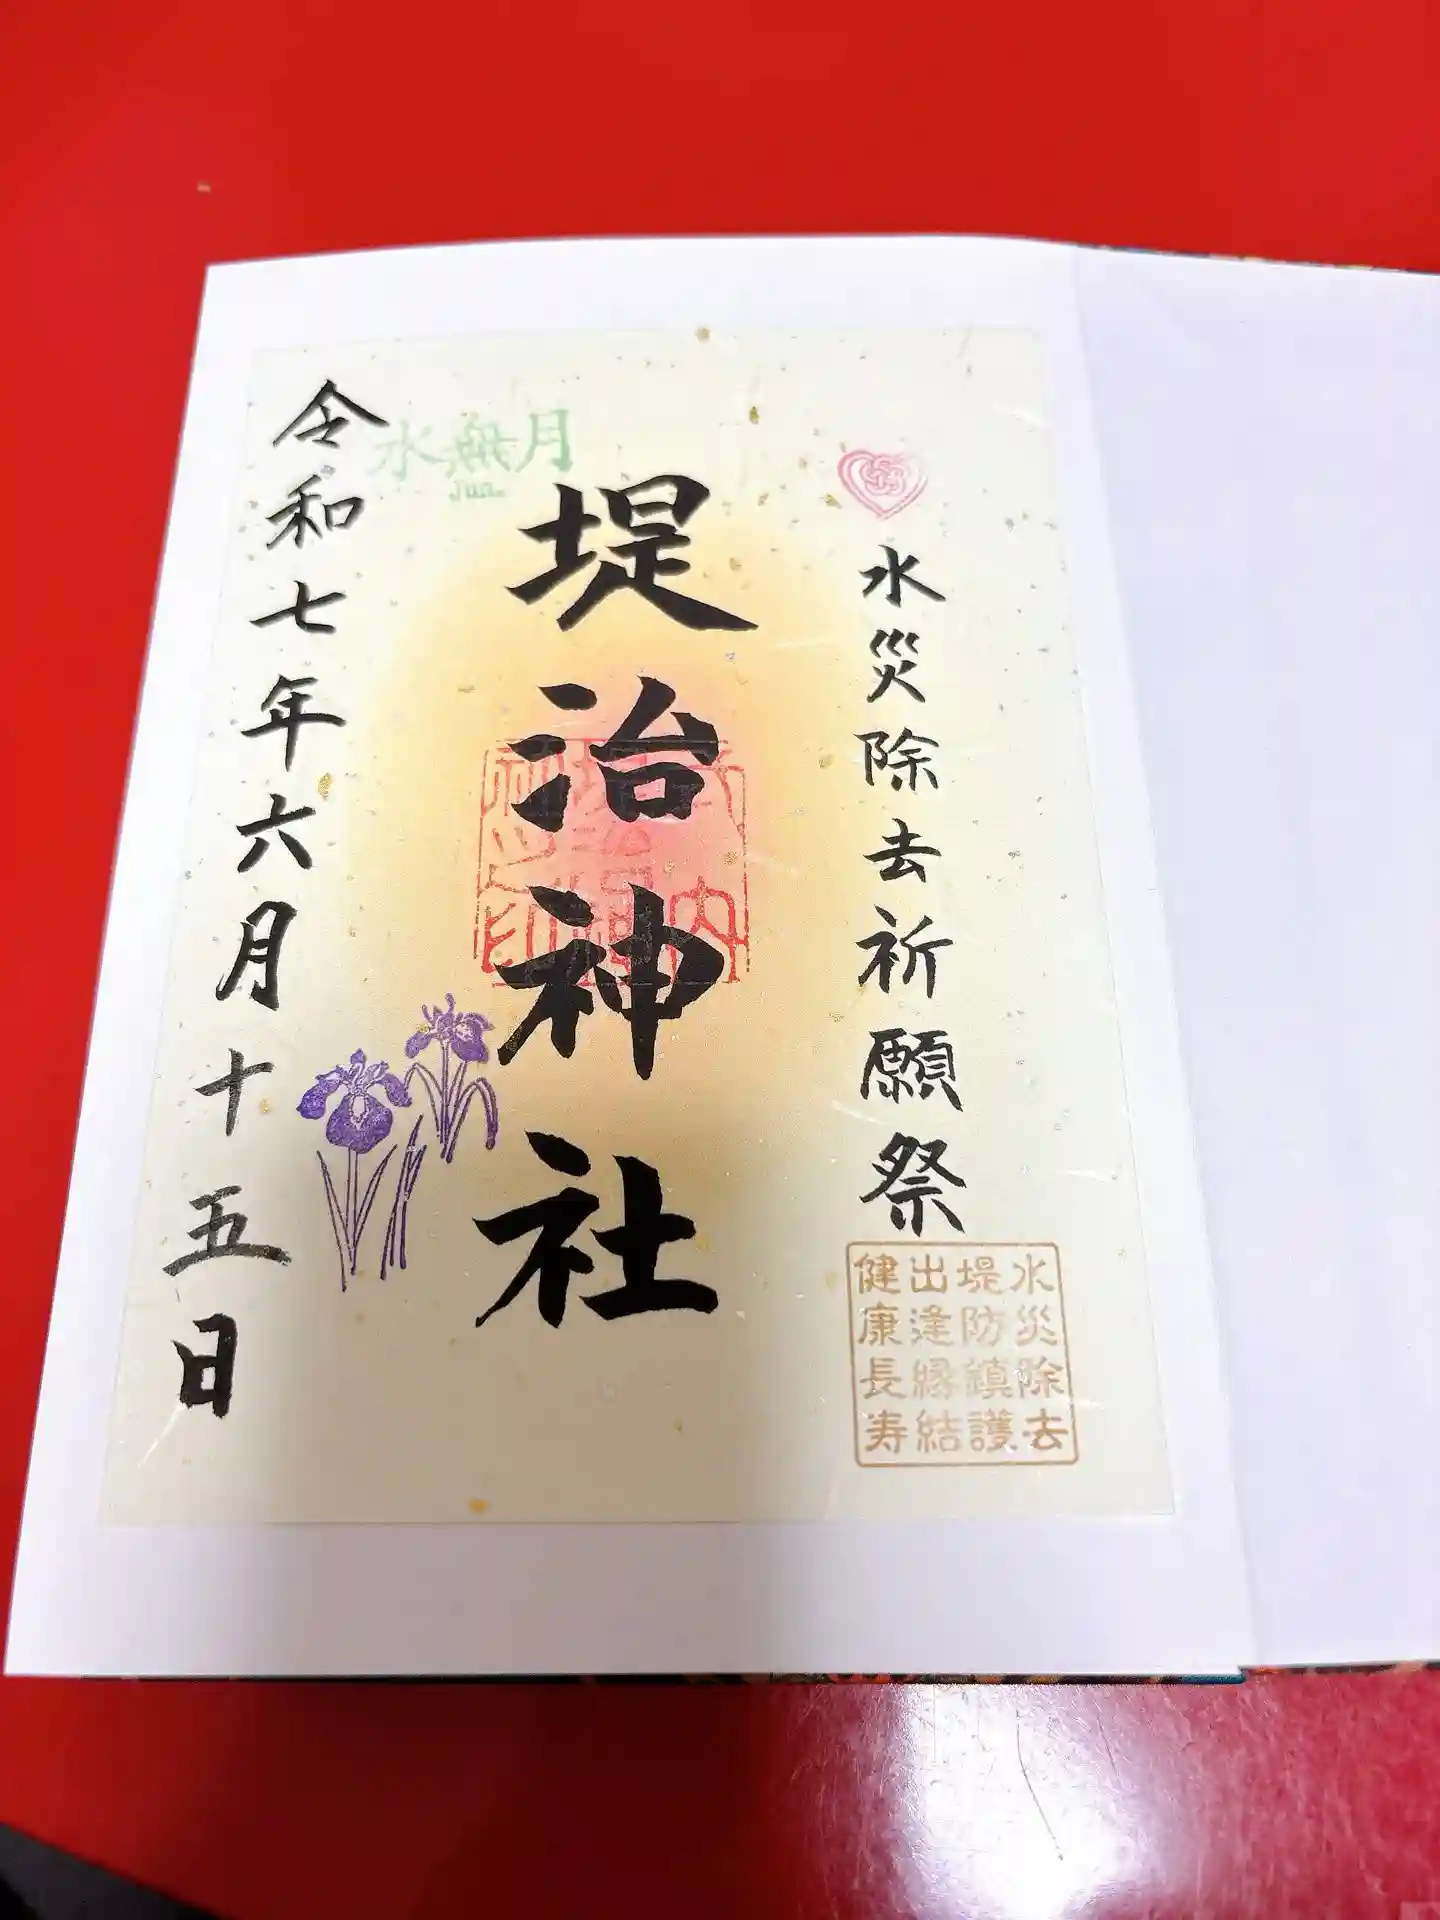 水災除去祈願祭
水災除去
堤防鎮護
出逢縁結
健康長寿
水無月
Jun.
堤治神社
令和七年六月十五日